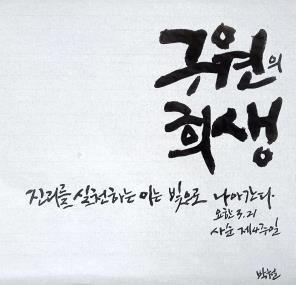 구원의
희생
진리를 실천하는 이는 빛으로 나아간다.
요한 3. 21
사순 제4주일